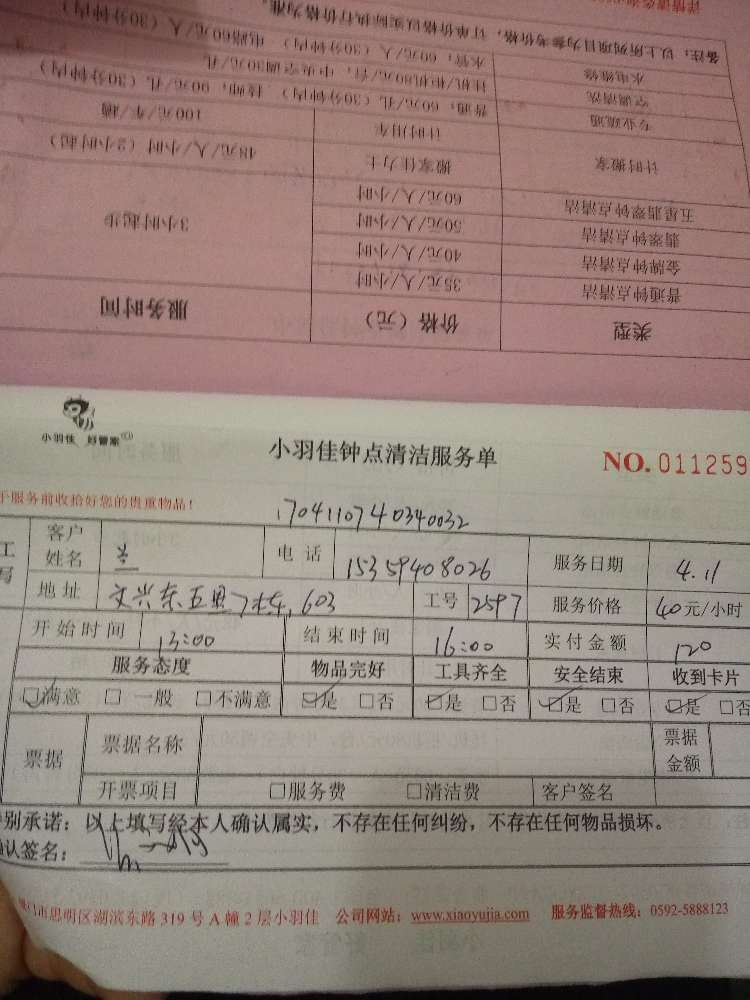 详情请咨询
备注：以上所列项目为参考价格，订单价格以实际执行价格为准。
水电维修 水管，60元/人（30分钟内） 电路60元/人（30分钟内）
空调清洗 挂机/柜机80元/台，中央空调30元/孔
专业疏通 普通，60元/孔（30分钟内） 技师，90元/孔（30分钟内）
计时搬家 计时用车 100元/车/趟
搬家佳力士 48元/人/小时（2小时起）
五星翡翠钟点清洁 60元/人/小时
翡翠钟点清洁 50元/人/小时 3小时起步
金牌钟点清洁 40元/人/小时
普通钟点清洁 35元/人/小时
类型 价格（元） 服务时间
小羽佳 好管家
小羽佳钟点清洁服务单 NO. 011259
于服务前收拾好您的贵重物品！
1704110740340032
工 客户姓名 兰 电话 15359408026 服务日期 4.11
写 地址 文兴东五里7栋，603 工号 2597 服务价格 40元/小时
开始时间 13:00 结束时间 16:00 实付金额 120
服务态度 物品完好 工具齐全 安全结束 收到卡片
满意 一般 不满意 是 否 是 否 是 否 是 否
票据 票据名称 票据金额
开票项目 服务费 清洁费 客户签名
别承诺：以上填写经本人确认属实，不存在任何纠纷，不存在任何物品损坏。
认签名：
门市思明区湖滨东路319号A幢2层小羽佳 公司网站：www.xiaoyujia.com 服务监督热线：0592-5888123